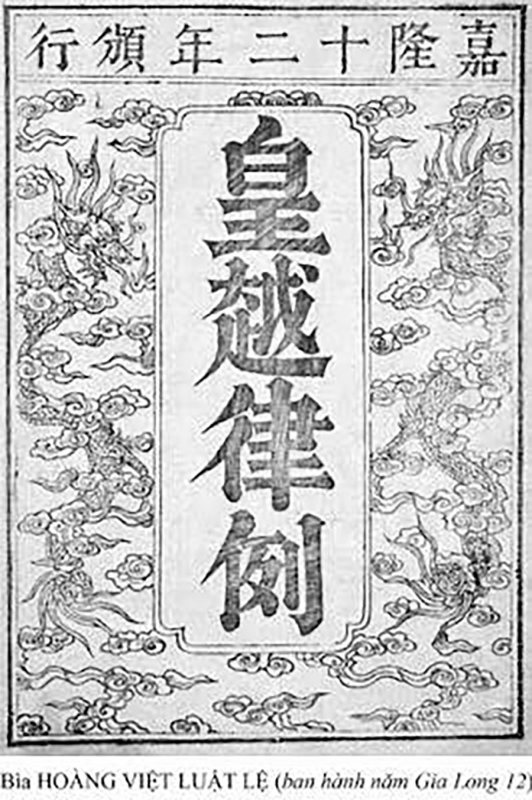 嘉隆十二年頒行
皇越律例
Bìa HOÀNG VIỆT LUẬT LỆ (ban hành năm Gia Long 12)